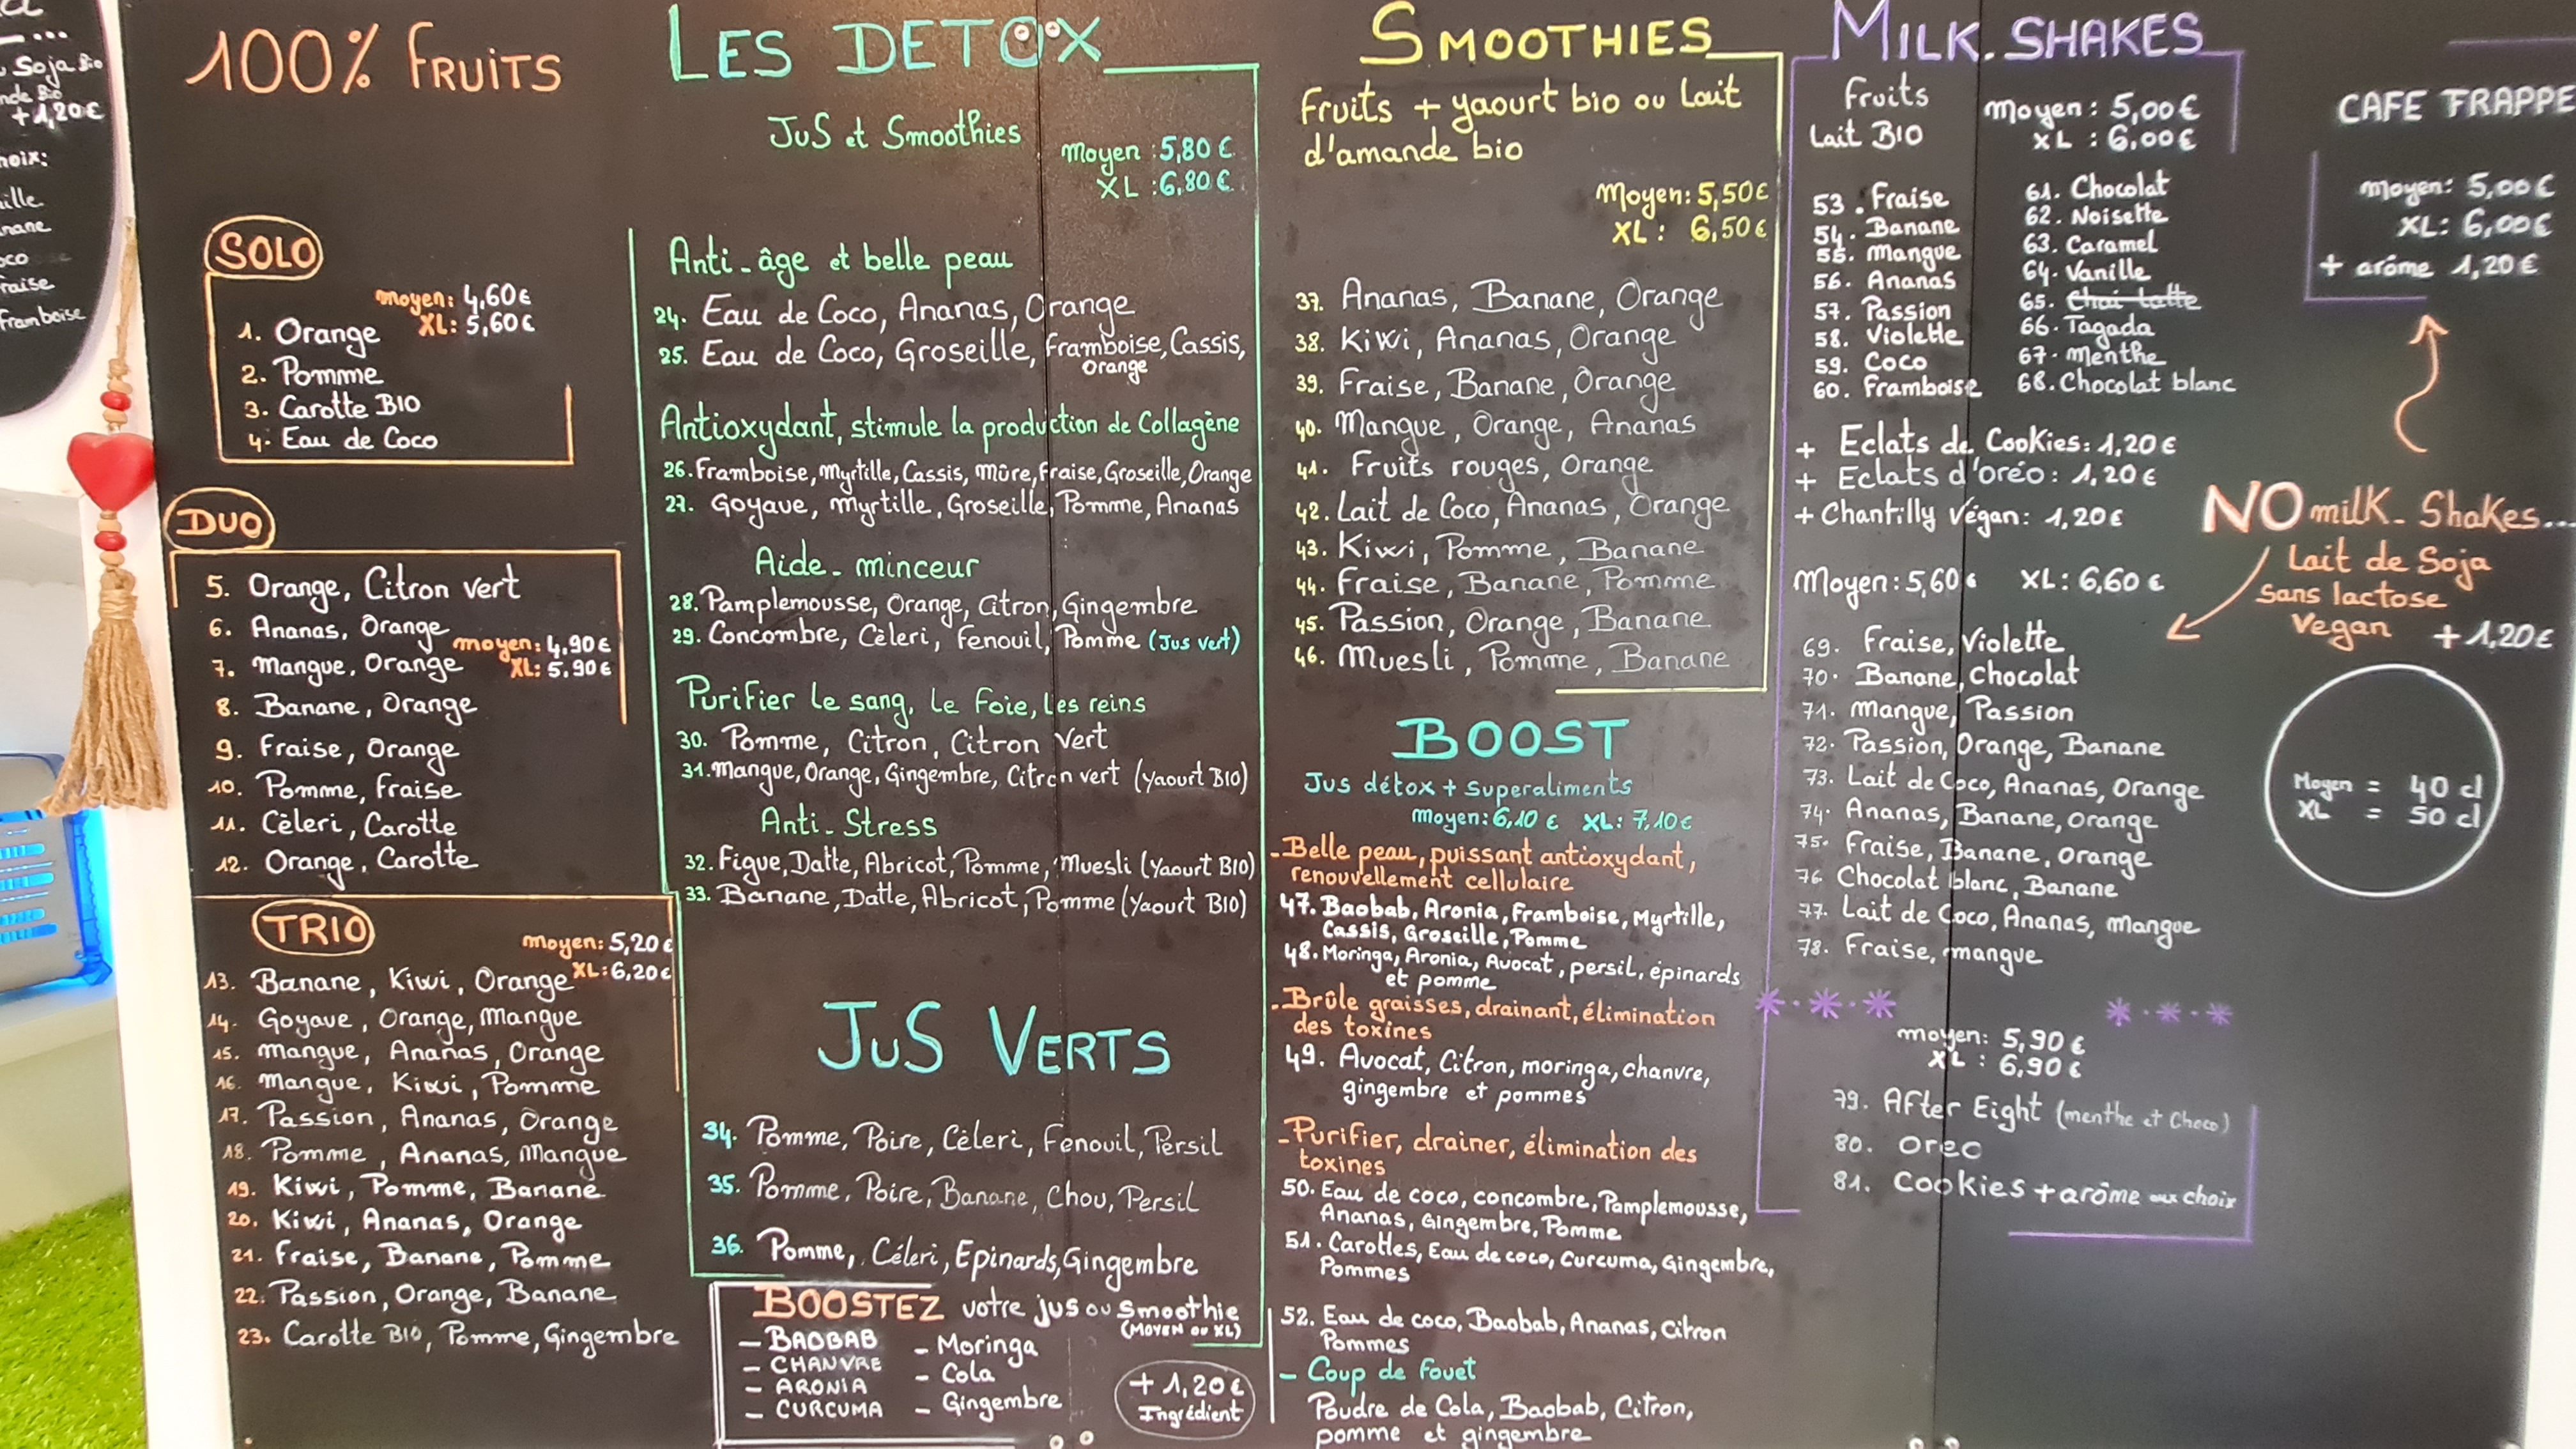 Soja Bio
Bio
+1,20€
100% FRUITS
SOLO
Moyen: 4,60€
XL: 5,60€
1. Orange
2. Pomme
3. Carotte BIO
4. Eau de Coco
DUO
5. Orange, Citron vert
6. Ananas, Orange
Moyen: 4,90€
XL: 5,90€
7. Mangue, Orange
8. Banane, Orange
9. Fraise, Orange
10. Pomme, Fraise
11. Cèleri, Carotte
12. Orange, Carotte
TRIO
Moyen: 5,20€
XL: 6,20€
13. Banane, Kiwi, Orange
14. Goyave, Orange, Mangue
15. Mangue, Ananas, Orange
16. Mangue, Kiwi, Pomme
17. Passion, Ananas, Orange
18. Pomme, Ananas, Mangue
19. Kiwi, Pomme, Banane
20. Kiwi, Ananas, Orange
21. Fraise, Banane, Pomme
22. Passion, Orange, Banane
23. Carotte BIO, Pomme, Gingembre
LES DETOX
JuS et Smoothies
Moyen : 5,80€
XL : 6,80€
Anti-âge et belle peau
24. Eau de Coco, Ananas, Orange
25. Eau de Coco, Groseille, Framboise, Cassis,
Orange
Antioxydant, stimule la production de Collagène
26. Framboise, Myrtille, Cassis, Mûre, Fraise, Groseille, Orange
27. Goyave, Myrtille, Groseille, Pomme, Ananas
Aide-minceur
28. Pamplemousse, Orange, Citron, Gingembre
29. Concombre, Cèleri, Fenouil, Pomme (Jus vert)
Purifier le sang, le foie, les reins
30. Pomme, Citron, Citron vert
31. Mangue, Orange, Gingembre, Citron vert (Yaourt BIO)
Anti-Stress
32. Figue, Datte, Abricot, Pomme, Muesli (Yaourt BIO)
33. Banane, Datte, Abricot, Pomme (Yaourt BIO)
JuS VERTS
34. Pomme, Poire, Cèleri, Fenouil, Persil
35. Pomme, Poire, Banane, Chou, Persil
36. Pomme, Céleri, Epinards, Gingembre
BOOSTEZ votre jus ou smoothie
(MOYEN OU XL)
- BAOBAB
- CHANVRE
- ARONIA
- CURCUMA
- Moringa
- Cola
- Gingembre
+ 1,20€
Ingrédient
SMOOTHIES
Fruits + yaourt bio ou lait
d'amande bio
Moyen: 5,50€
XL: 6,50€
37. Ananas, Banane, Orange
38. Kiwi, Ananas, Orange
39. Fraise, Banane, Orange
40. Mangue, Orange, Ananas
41. Fruits rouges, Orange
42. Lait de Coco, Ananas, Orange
43. Kiwi, Pomme, Banane
44. Fraise, Banane, Pomme
45. Passion, Orange, Banane
46. Muesli, Pomme, Banane
BOOST
Jus détox + superaliments
Moyen: 6,10€ XL: 7,10€
- Belle peau, puissant antioxydant,
renouvellement cellulaire
47. Baobab, Aronia, Framboise, Myrtille,
Cassis, Groseille, Pomme
48. Moringa, Aronia, Avocat, persil, épinards
et pomme
- Brûle graisses, drainant, élimination
des toxines
49. Avocat, Citron, moringa, chanvre,
gingembre et pommes
- Purifier, drainer, élimination des
toxines
50. Eau de coco, concombre, Pamplemousse,
Ananas, Gingembre, Pomme
51. Carottes, Eau de coco, Curcuma, Gingembre,
Pommes
52. Eau de coco, Baobab, Ananas, Citron
Pommes
- Coup de fouet
Poudre de Cola, Baobab, Citron,
pomme et gingembre
MILK.SHAKES
Fruits
Lait BIO
Moyen: 5,00€
XL : 6,00€
53. Fraise
54. Banane
55. Mangue
56. Ananas
57. Passion
58. Violette
59. Coco
60. Framboise
61. Chocolat
62. Noisette
63. Caramel
64. Vanille
65. Chai latte
66. Tagada
67. Menthe
68. Chocolat blanc
+ Eclats de Cookies: 1,20€
+ Eclats d'oréo: 1,20€
+ Chantilly Végan: 1,20€
Moyen: 5,60€ XL: 6,60€
69. Fraise, Violette
70. Banane, Chocolat
71. Mangue, Passion
72. Passion, Orange, Banane
73. Lait de Coco, Ananas, Orange
74. Ananas, Banane, Orange
75. Fraise, Banane, Orange
76. Chocolat blanc, Banane
77. Lait de Coco, Ananas, Mangue
78. Fraise, mangue
Moyen: 5,90€
XL : 6,90€
79. After Eight (menthe et Choco)
80. Oreo
81. Cookies + arôme aux choix
CAFE FRAPPE
Moyen: 5,00€
XL: 6,00€
+ arôme 1,20€
NO milk-Shakes...
Lait de Soja
Sans lactose
Vegan +1,20€
Moyen = 40 cl
XL = 50 cl